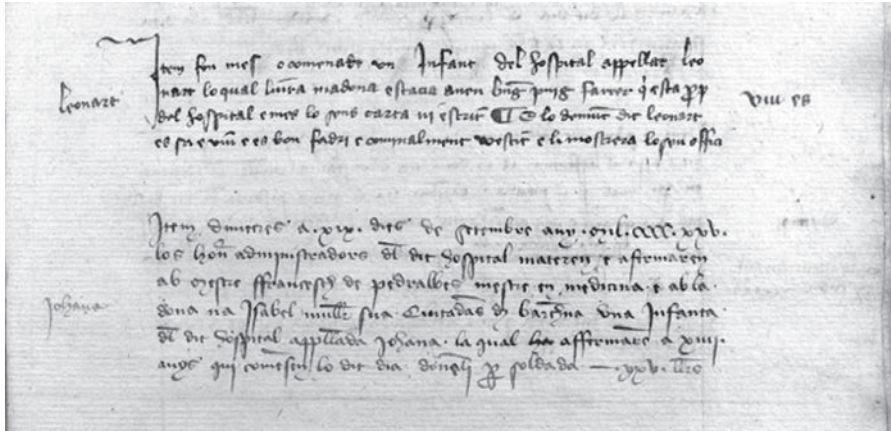 Item fon mes acomenadt un Infant del hospital appellat leo
nart lo qual liura madona estacia a puig farrer esta
Leonart
del hospital e mes lo sens carta ni escrit ¶ E lo demunt dit leonart
viu es
es sa e viu e es bon fadri e cominalment vestit e li mostrera lo seu offici
Item dimecres a .xix. dies de setembre any .mil. cccc. xxv.
los hon administradors dl dit hospital materen e afermaren
ab mestre ffrancesch de pedralbes mestre en medicina e ab la
Johana
dona na Isabel mullr sua Ciutadans d barchna una Infanta
dl dit hospital appllada Johana. la qual han affermare a xiiii.
anys qui comesen lo dit dia donen li per soldada — .xxv. llrs